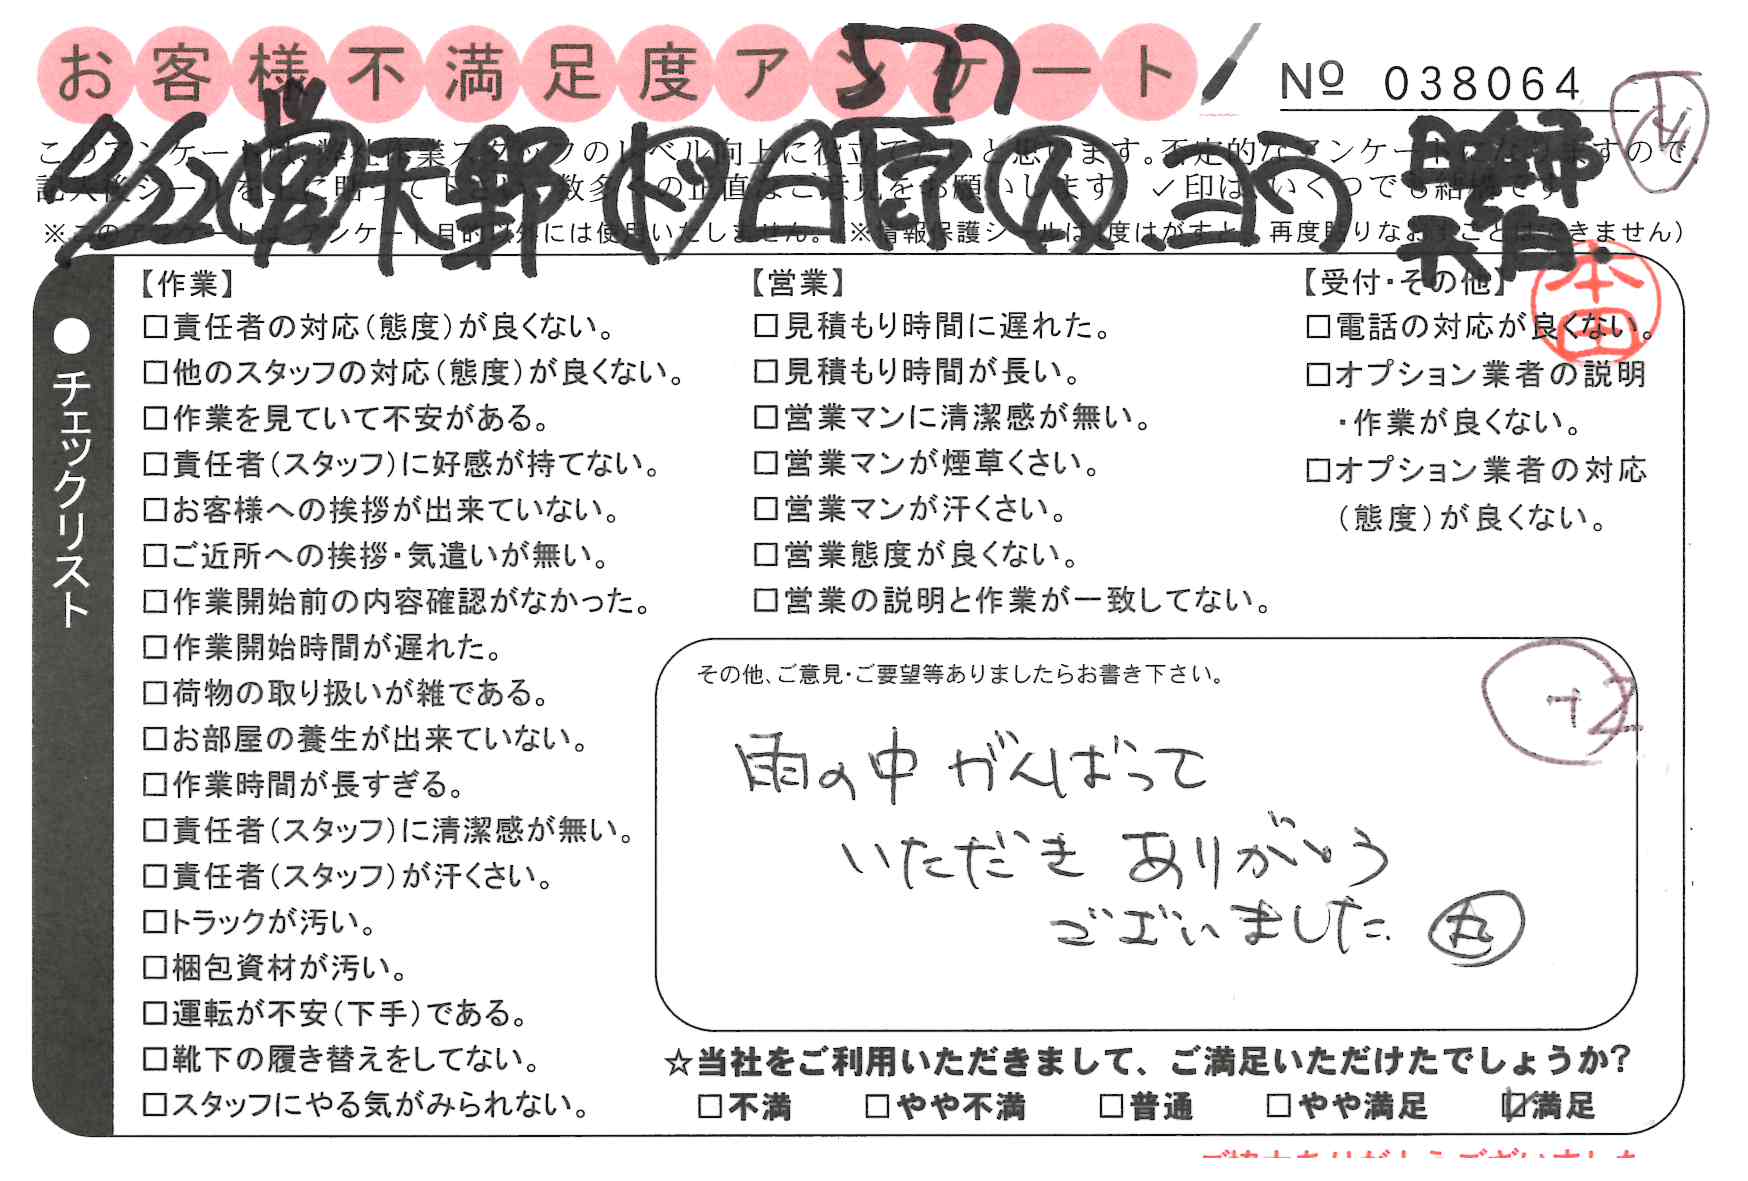 お客様不満足度アンケート
577
Nº 038064
このアンケートは、弊社作業スタッフのレベル向上に役立てたいと思います。否定的なアンケートになりますので、
記入後シールを上に貼って下さい。数多くの正直なご意見をお願いします。✓印はいくつでも結構です。
※このアンケートは、アンケート目的以外には使用いたしません。(※情報保護シールは1度はがすと、再度貼りなおすことはできません)
天野
本田
●チェックリスト
【作業】
□責任者の対応(態度)が良くない。
□他のスタッフの対応(態度)が良くない。
□作業を見ていて不安がある。
□責任者(スタッフ)に好感が持てない。
□お客様への挨拶が出来ていない。
□ご近所への挨拶・気遣いが無い。
□作業開始前の内容確認がなかった。
□作業開始時間が遅れた。
□荷物の取り扱いが雑である。
□お部屋の養生が出来ていない。
□作業時間が長すぎる。
□責任者(スタッフ)に清潔感が無い。
□責任者(スタッフ)が汗くさい。
□トラックが汚い。
□梱包資材が汚い。
□運転が不安(下手)である。
□靴下の履き替えをしてない。
□スタッフにやる気がみられない。
【営業】
□見積もり時間に遅れた。
□見積もり時間が長い。
□営業マンに清潔感が無い。
□営業マンが煙草くさい。
□営業マンが汗くさい。
□営業態度が良くない。
□営業の説明と作業が一致してない。
【受付・その他】
□電話の対応が良くない。
□オプション業者の説明
・作業が良くない。
□オプション業者の対応
(態度)が良くない。
その他、ご意見・ご要望等ありましたらお書き下さい。
+2
雨の中 がんばって
いただき ありがとう
ございました。 丸
☆当社をご利用いただきまして、ご満足いただけたでしょうか?
□不満 □やや不満 □普通 □やや満足 ☑満足
ご協力ありがとうございました